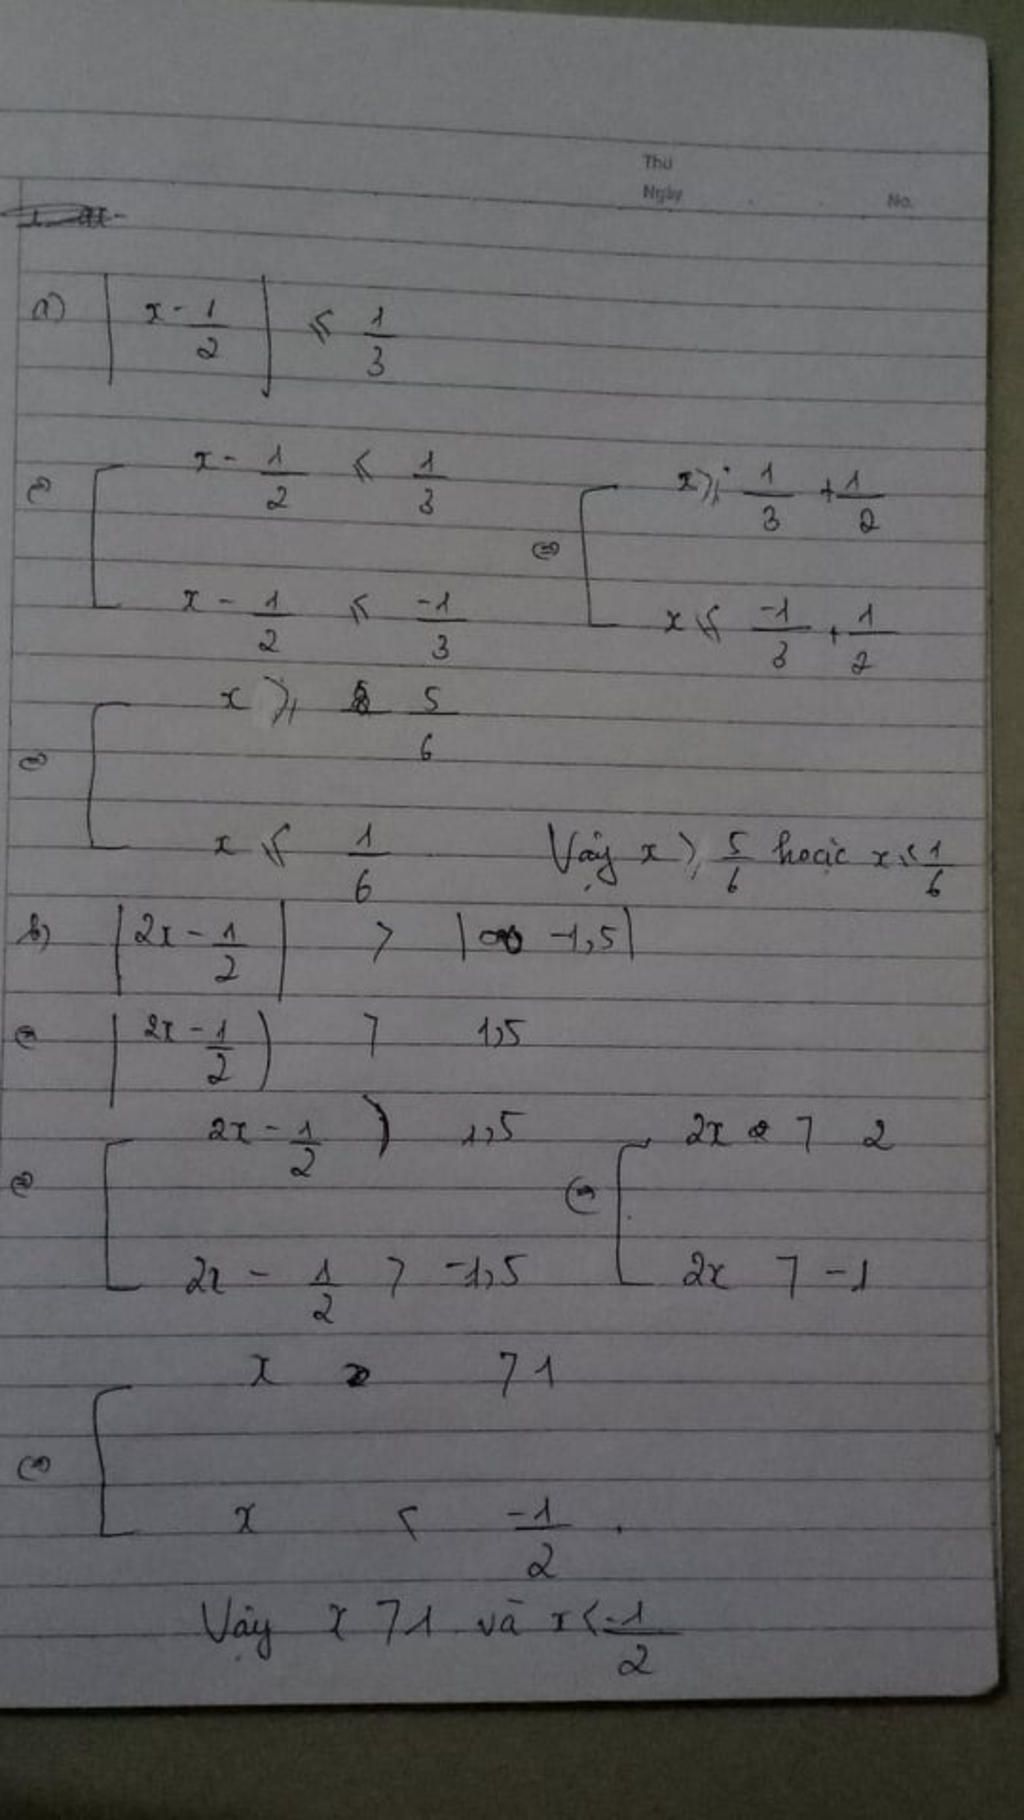 Thứ
Ngày
No.
a) |x - 1/2| ≤ 1/3
⇔ [ x - 1/2 ≤ 1/3 ⇔ [ x ≥ 1/3 + 1/2
x - 1/2 ≤ -1/3 x ≤ -1/3 + 1/2
⇔ [ x ≥ 5/6
x ≤ 1/6 Vậy x ≥ 5/6 hoặc x ≤ 1/6
b) |2x - 1/2| > |-1,5|
⇔ |2x - 1/2| > 1,5
⇔ [ 2x - 1/2 > 1,5 ⇔ [ 2x > 2
2x - 1/2 > -1,5 2x > -1
⇔ [ x > 1
x < -1/2.
Vậy x > 1 và x < -1/2